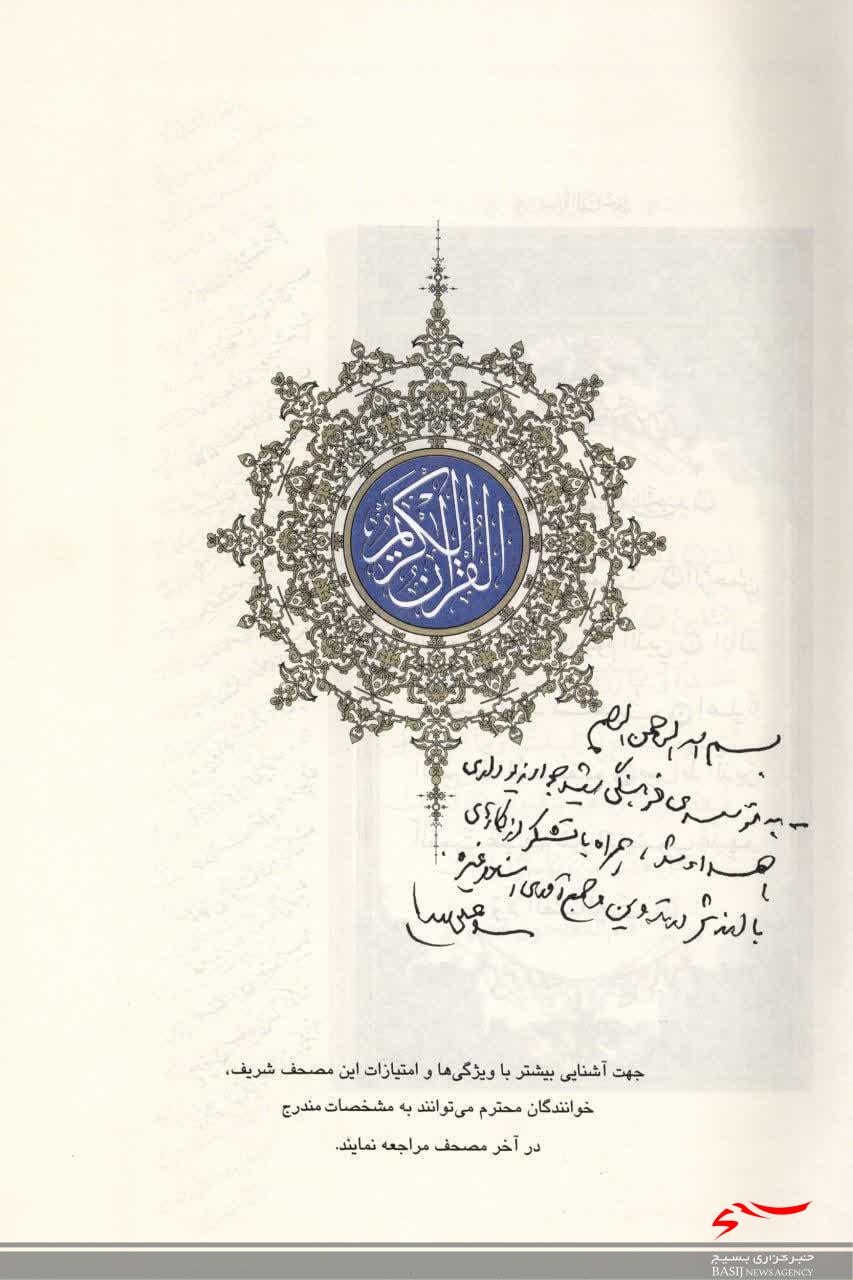 القرآن الكريم
بسم الله الرحمن الرحیم
به مؤسسه‌ی فرهنگی شهید جواد زیوداری
اهدا شد، همراه با تشکر از کارهای
با ارزش در تدوین و جمع آوری اسناد و غیره.
جهت آشنایی بیشتر با ویژگی‌ها و امتیازات این مصحف شریف،
خوانندگان محترم می‌توانند به مشخصات مندرج
در آخر مصحف مراجعه نمایند.
بسیج
خبرگزاری بسیج
BASIJ NEWS AGENCY